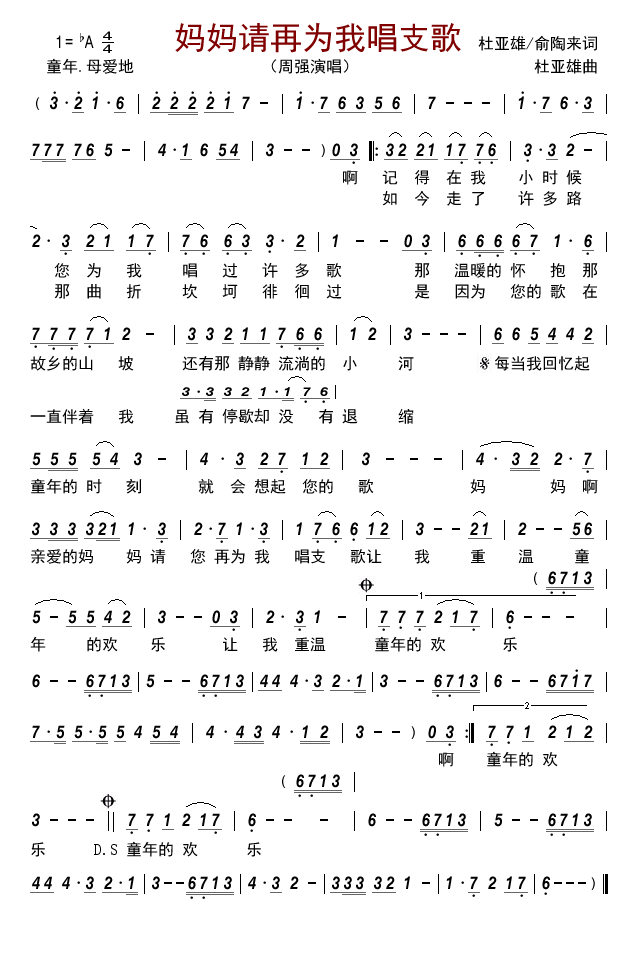 妈妈请再为我唱支歌
1= ♭A 4/4
杜亚雄/俞陶来词
童年.母爱地
（周强演唱）
杜亚雄曲
( 3·2 1·6 | 2 2 2 2 1 7 - | 1·7 6 3 5 6 | 7 - - - | 1·7 6·3 |
7 7 7 7 6 5 - | 4·1 6 5 4 | 3 - - ) 0 3 ‖: 3 2 2 1 1 7 7 6 | 3·3 2 - |
啊 记 得 在 我 小 时 候
如 今 走 了 许 多 路
2·3 2 1 1 7 | 7 6 6 3 3·2 | 1 - - 0 3 | 6 6 6 6 7 1·6 |
您 为 我 唱 过 许 多 歌 那 温暖的 怀 抱 那
那 曲 折 坎 坷 徘 徊 过 是 因为 您的 歌 在
7 7 7 7 1 2 - | 3 3 2 1 1 7 6 6 | 1 2 | 3 - - - | 6 6 5 4 4 2 |
故乡的 山 坡 还有那 静静 流淌的 小 河 𝄋 每当我回忆起
3·3 3 2 1·1 7 6 |
一直伴着 我 虽 有 停歇却 没 有 退 缩
5 5 5 5 4 3 - | 4·3 2 7 1 2 | 3 - - - | 4·3 2 2·7 |
童年的 时 刻 就 会 想起 您的 歌 妈 妈 啊
3 3 3 3 2 1 1·3 | 2·7 1·3 | 1 7 6 6 1 2 | 3 - - 2 1 | 2 - - 5 6 |
亲爱的 妈 妈 请 您 再为 我 唱支 歌让 我 重 温 童
( 6 7 1 3 |
1
5 - 5 5 4 2 | 3 - - 0 3 | 2·3 1 - | 7 7 7 2 1 7 | 6 - - - |
年 的欢 乐 让 我 重温 童年的 欢 乐
6 - - 6 7 1 3 | 5 - - 6 7 1 3 | 4 4 4·3 2·1 | 3 - - 6 7 1 3 | 6 - - 6 7 1 7 |
7·5 5·5 5 4 5 4 | 4·4 3 4·1 2 | 3 - - ) 0 3 :‖ 7 7 1 2 1 2 |
2
啊 童年的 欢
( 6 7 1 3 |
3 - - - ‖ 7 7 1 2 1 7 | 6 - - - | 6 - - 6 7 1 3 | 5 - - 6 7 1 3 |
乐 D.S 童年的 欢 乐
4 4 4·3 2·1 | 3 - - 6 7 1 3 | 4·3 2 - | 3 3 3 3 2 1 | 1·7 2 1 7 | 6 - - - ) ‖